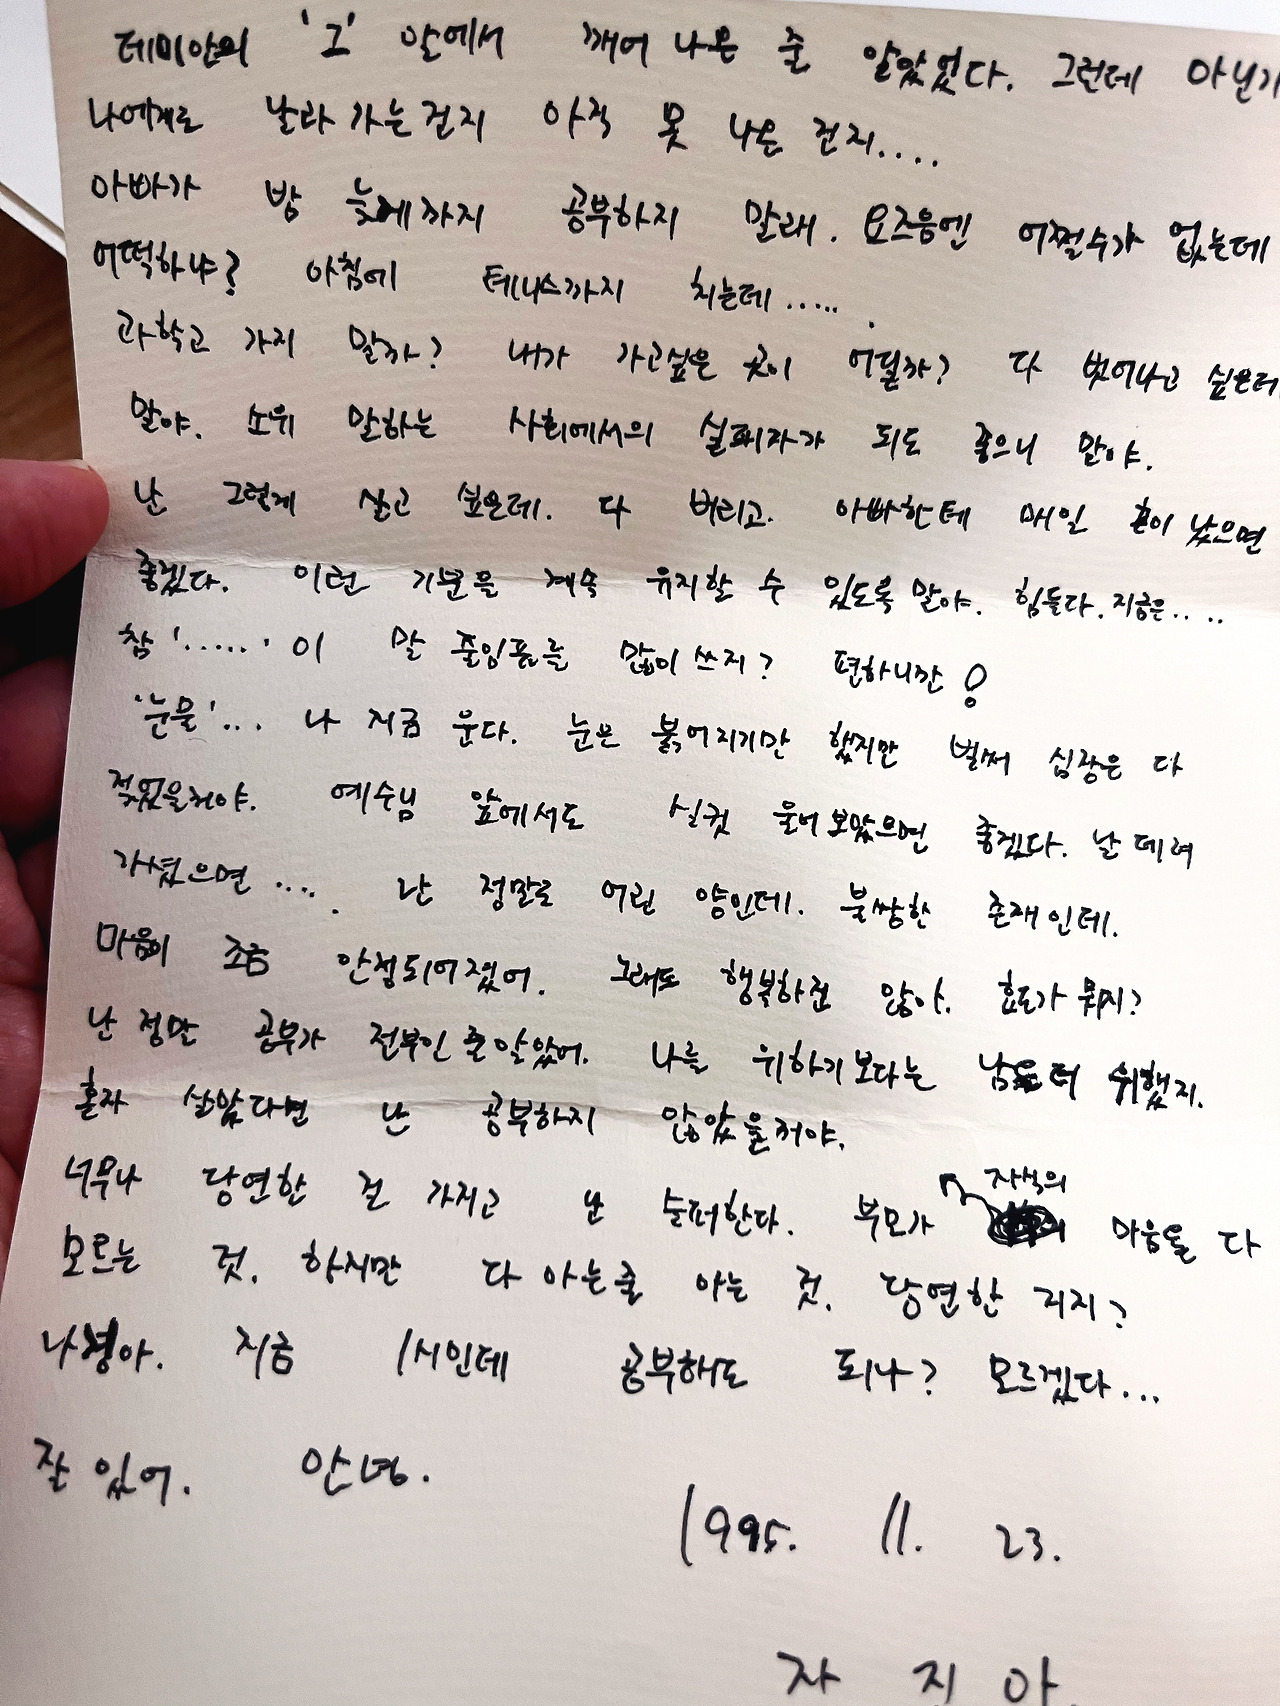 데미안의 '그' 앞에서 깨어 나온 줄 알았었다. 그런데 아닌가
나에게로 날라 가는건지 아직 못 나온 건지....
아빠가 밤 늦게까지 공부하지 말래. 요즈음엔 어쩔수가 없는데
어떡하냐? 아침에 테니스까지 치는데......
과학고 가지 말까? 내가 가고싶은 곳이 어딜까? 다 벗어나고 싶은데
말야. 소위 말하는 사회에서의 실패자가 되도 좋으니 말야.
난 그렇게 살고 싶은데. 다 버리고. 아빠한테 매일 혼이 났으면
좋겠다. 이런 기분을 계속 유지할 수 있도록 말야. 힘들다. 지금은....
참 '.....' 이 말 줄임표를 많이 쓰지? 편하니깐!
'눈물'... 나 지금 운다. 눈은 붉어지기만 했지만 벌써 심장은 다
젖었을꺼야. 예수님 앞에서도 실컷 울어 보았으면 좋겠다. 날 데려
가셨으면 ..... 난 정말로 어린 양인데. 불쌍한 존재인데.
마음이 조금 안정되어졌어. 그래도 행복하진 않아. 효도가 뭐지?
난 정말 공부가 전부인 줄 알았어. 나를 위하기 보다는 남을 더 위했지.
혼자 살았다면 난 공부하지 않았을꺼야.
너무나 당연한 걸 가지고 난 슬퍼한다. 부모가 자식의 마음을 다
모르는 것. 하지만 다 아는줄 아는 것. 당연한 거지?
나경아. 지금 1시인데 공부해도 되나? 모르겠다...
잘 있어. 안녕.
1995. 11. 23.
지아